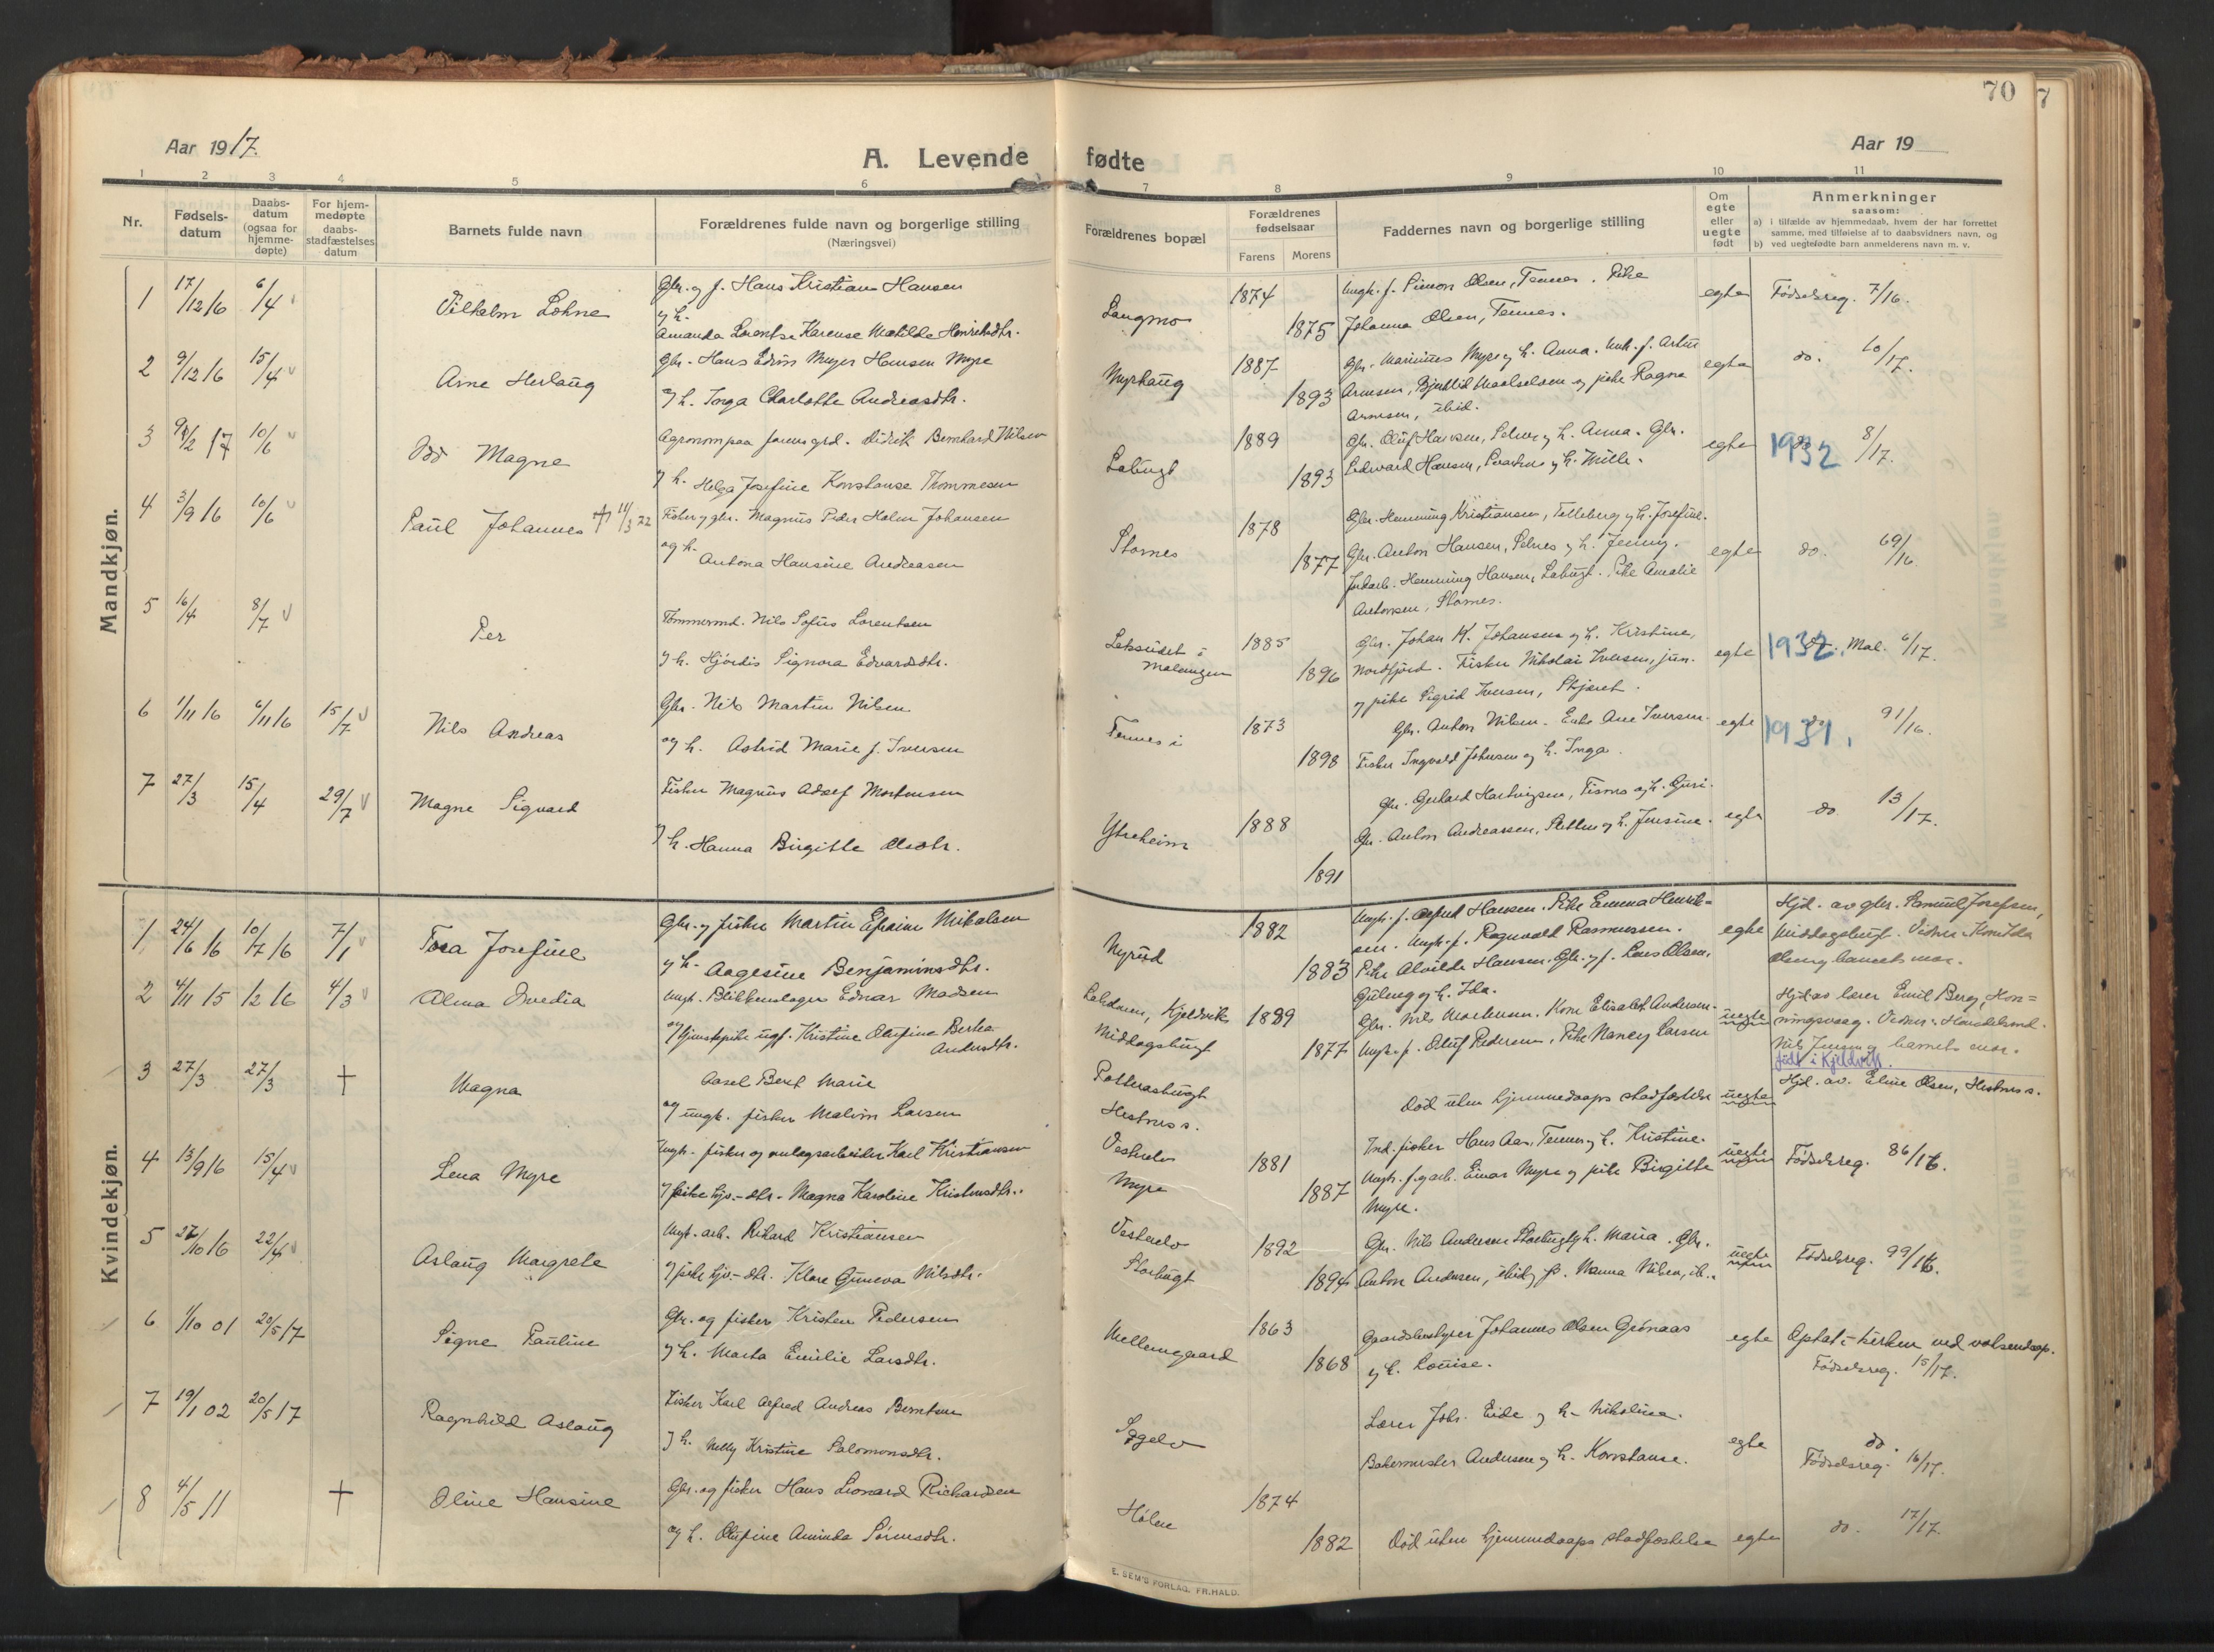 70
7
Aar 1917.
A. Levende fødte
Aar 19
1 2 3 4 5 6 7 8 9 10 11
Nr.
Fødsels-
datum
Daabs-
datum
(ogsaa for
hjemme-
døpte)
For hjem-
medøpte
daabs-
stadfæstelses
datum
Barnets fulde navn
Forældrenes fulde navn og borgerlige stilling
(Næringsvei)
Forældrenes bopæl
Forældrenes
fødselsaar
Farens Morens
Faddernes navn og borgerlige stilling
Om
egte
eller
uegte
født
Anmerkninger
saasom:
a) i tilfælde av hjemmedaab, hvem der har forrettet
samme, med tilføielse af to daabsvidners navn, og
b) ved uegtefødte barn anmelderens navn m. v.
Mandkjøn.
1 17/12 16 6/4 Vilhelm Lohne
Gbr. og f. Hans Kristian Hansen
og h.
Amanda Lorentse Karense Matilde Henriksdtr.
Langmo 1874 1875
Ungk. f. Simon Olsen, Tennes. Pike
Johanna Olsen, Tennes.
egte Fødselsreg. 7/16.
2 9/12 16 15/4 Arne Herlaug
Gbr. Hans Edvin Meyer Hansen Myre
og h. Inga Charlotte Andreasdtr.
Myrhaug 1887 1893
Gbr. Marinius Myre og h. Anna. Unk. f. Artur
Arnesen, Maalselven og pike Ragna
Arnesen, ibid.
egte do. 10/17.
3 /2 17 10/6 Odd Magne
Agronom paa grd. Didrik Bernhard Nilsen
og h. Helga Josefine Konstanse Trommesen
Labugt 1889 1893
Gbr. Oluf Hansen, Selnes og h. Anna. Gbr.
Edward Hansen, og h. Mille.
egte 1932 8/17.
4 3/9 16 10/6 Paul Johannes † 11/3 22
Fisker og gbr. Magnus Peder Holm Johansen
og h. Antona Hansine Andreasen
Stornes 1878 1877
Gbr. Henning Kristiansen, Telleberg og h. Josefine.
Gbr. Anton Hansen, Selnes og h. Jenny.
Henning Hansen, Labugt. Pike Amalie
Antonsen, Stornes.
egte do. 69/16.
5 16/4 8/7 Per
Tømmermd. Nils Sofus Lorentsen
og h. Hjørdis Signora Edvardsdtr.
i Malangen 1885 1896
Gbr. Johan K. Johansen og h. Kristine,
Nordfjord. Fisker Nikolai Iversen, jun.
og pike Sigrid Iversen, Skjæret.
egte 1932. Mal. 6/17.
6 1/11 16 6/11 16 15/7 Nils Andreas
Gbr. Nils Martin Nilsen
og h. Astrid Marie f. Iversen
Tennes i 1873 1898
Gbr. Anton Nilsen. Enke Ane Iversen.
Fisker Ingvald Johnsen og h. Inga.
egte 1931. 91/16.
7 27/3 15/4 29/7 Magne Sigvard
Fisker Magnus Adolf Mortensen
og h. Hanna Birgitte Olsdtr.
Ytreheim 1888 1891
Gbr. Gerhard Hartvigsen, og h. Guri.
Gbr. Anton Andreassen, Sletten og h. Jensine.
egte do. 13/17.
Kvindekjøn.
1 24/6 16 10/7 16 7/1 Tora Josefine
Gbr. og fisker Martin Efraim Mikalsen
og h. Aagesine Benjaminsdtr.
Nyrud 1882 1883
Ungk. f. Alfred Hansen. Pike Emma Henrik-
sen. Ungk. f. Ragnvald Rasmussen.
Pike Alvilde Hansen. Gbr. og f. Lars Olsen,
og h. Ida.
egte Hjd. av gbr. Samuel Josefsen,
Middagsbugt. Vidner: Kone Ida
Olsen og barnets mor.
2 4/11 15 1/2 16 4/3 Alma Ovedia
Ungk. Blikkenslager Edvar Madsen
og tjenestepike ugf. Kristine Olufine Berka
Andersdtr.
Kjeldvik
Middagsbugt 1889 1877
Gbr. Nils Mortensen. Kone Elisabet Andersen.
Ungk. f. Oluf Pedersen, Pike Nancy Larsen
uegte
Hjd. av lærer Emil Berg, Hon-
ningsvaag. Vidner: Handelsmd.
Nils Jensen og barnets mor.
født i Kjeldvik.
3 27/3 27/3 † Magna
Aasel Beret Marie
og ungk. fisker Malvin Larsen
Hestnes s.
Død uten hjemmedaaps stadfæstelse
uegte Hjd. av. Eline Olsen, Hestnes s.
4 13/9 16 15/4 Lena Myre
Ungk. fisker og anlægsarbeider Karl Kristiansen
og pike hjv.-dtr. Magna Karoline Kristensdtr.
Vestrelv
Myre 1881 1887
Ind. fisker Hans Aas, Tennes og h. Kristine.
Ungk. f. og arb. Einar Myre og pike Birgitte
Myre.
uegte Fødselsreg. 86/16.
5 27/10 16 22/4 Aslaug Margrete
Ungk. arb. Rikard Kristiansen
og pike hjv.-dtr. Klara Guneva Nilsdtr.
Vestrelv
Storbugt 1892 1894
Gbr. Nils Andersen Storbugt og h. Maria. Gbr.
Anton Andersen, ibid og p. Nanna Nilsen, ib..
uegte Fødselsreg. 99/16.
6 1/10 01 20/5 17 Signe Pauline
Gbr. og fisker Kristen Pedersen
og h. Marta Emilie Larsdtr.
Mellemgaard 1863 1868
Gaardsbestyrer Johannes Olsen Grønaas
og h. Louise.
egte Optat i kirken ved voksendaap.
Fødselsreg. 15/17.
7 19/1 02 20/5 17 Ragnhild Aslaug
Fisker Karl Alfred Andreas Berntsen
og h. Nelly Kristine Salomonsdtr.
Sagelv
Lærer Johs. Eide og h. Nikoline.
Bakermester Andersen og h. Konstanse.
egte do.
Fødselsreg. 16/17.
8 4/5 11 † Oline Hansine
Gbr. og fisker Hans Leonard Richardsen
og h. Olufine Aminda Sørensdtr.
Holm 1874 1882
Død uten hjemmedaaps stadfæstelse
egte do. 17/17.
E. SEM'S FORLAG, FR.HALD.